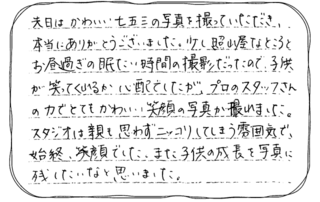 本日はかわいい七五三の写真を撮っていただき、
本当にありがとうございました。少し照れ屋なところと
お昼過ぎの眠たい時間の撮影だったので、子供
が笑ってくれるか心配でしたが、プロのスタッフさん
の力でとてもかわいい笑顔の写真が撮れました。
スタジオは親も思わずニッコリしてしまう雰囲気で、
始終、笑顔でした。また子供の成長を写真に
残したいなと思いました。